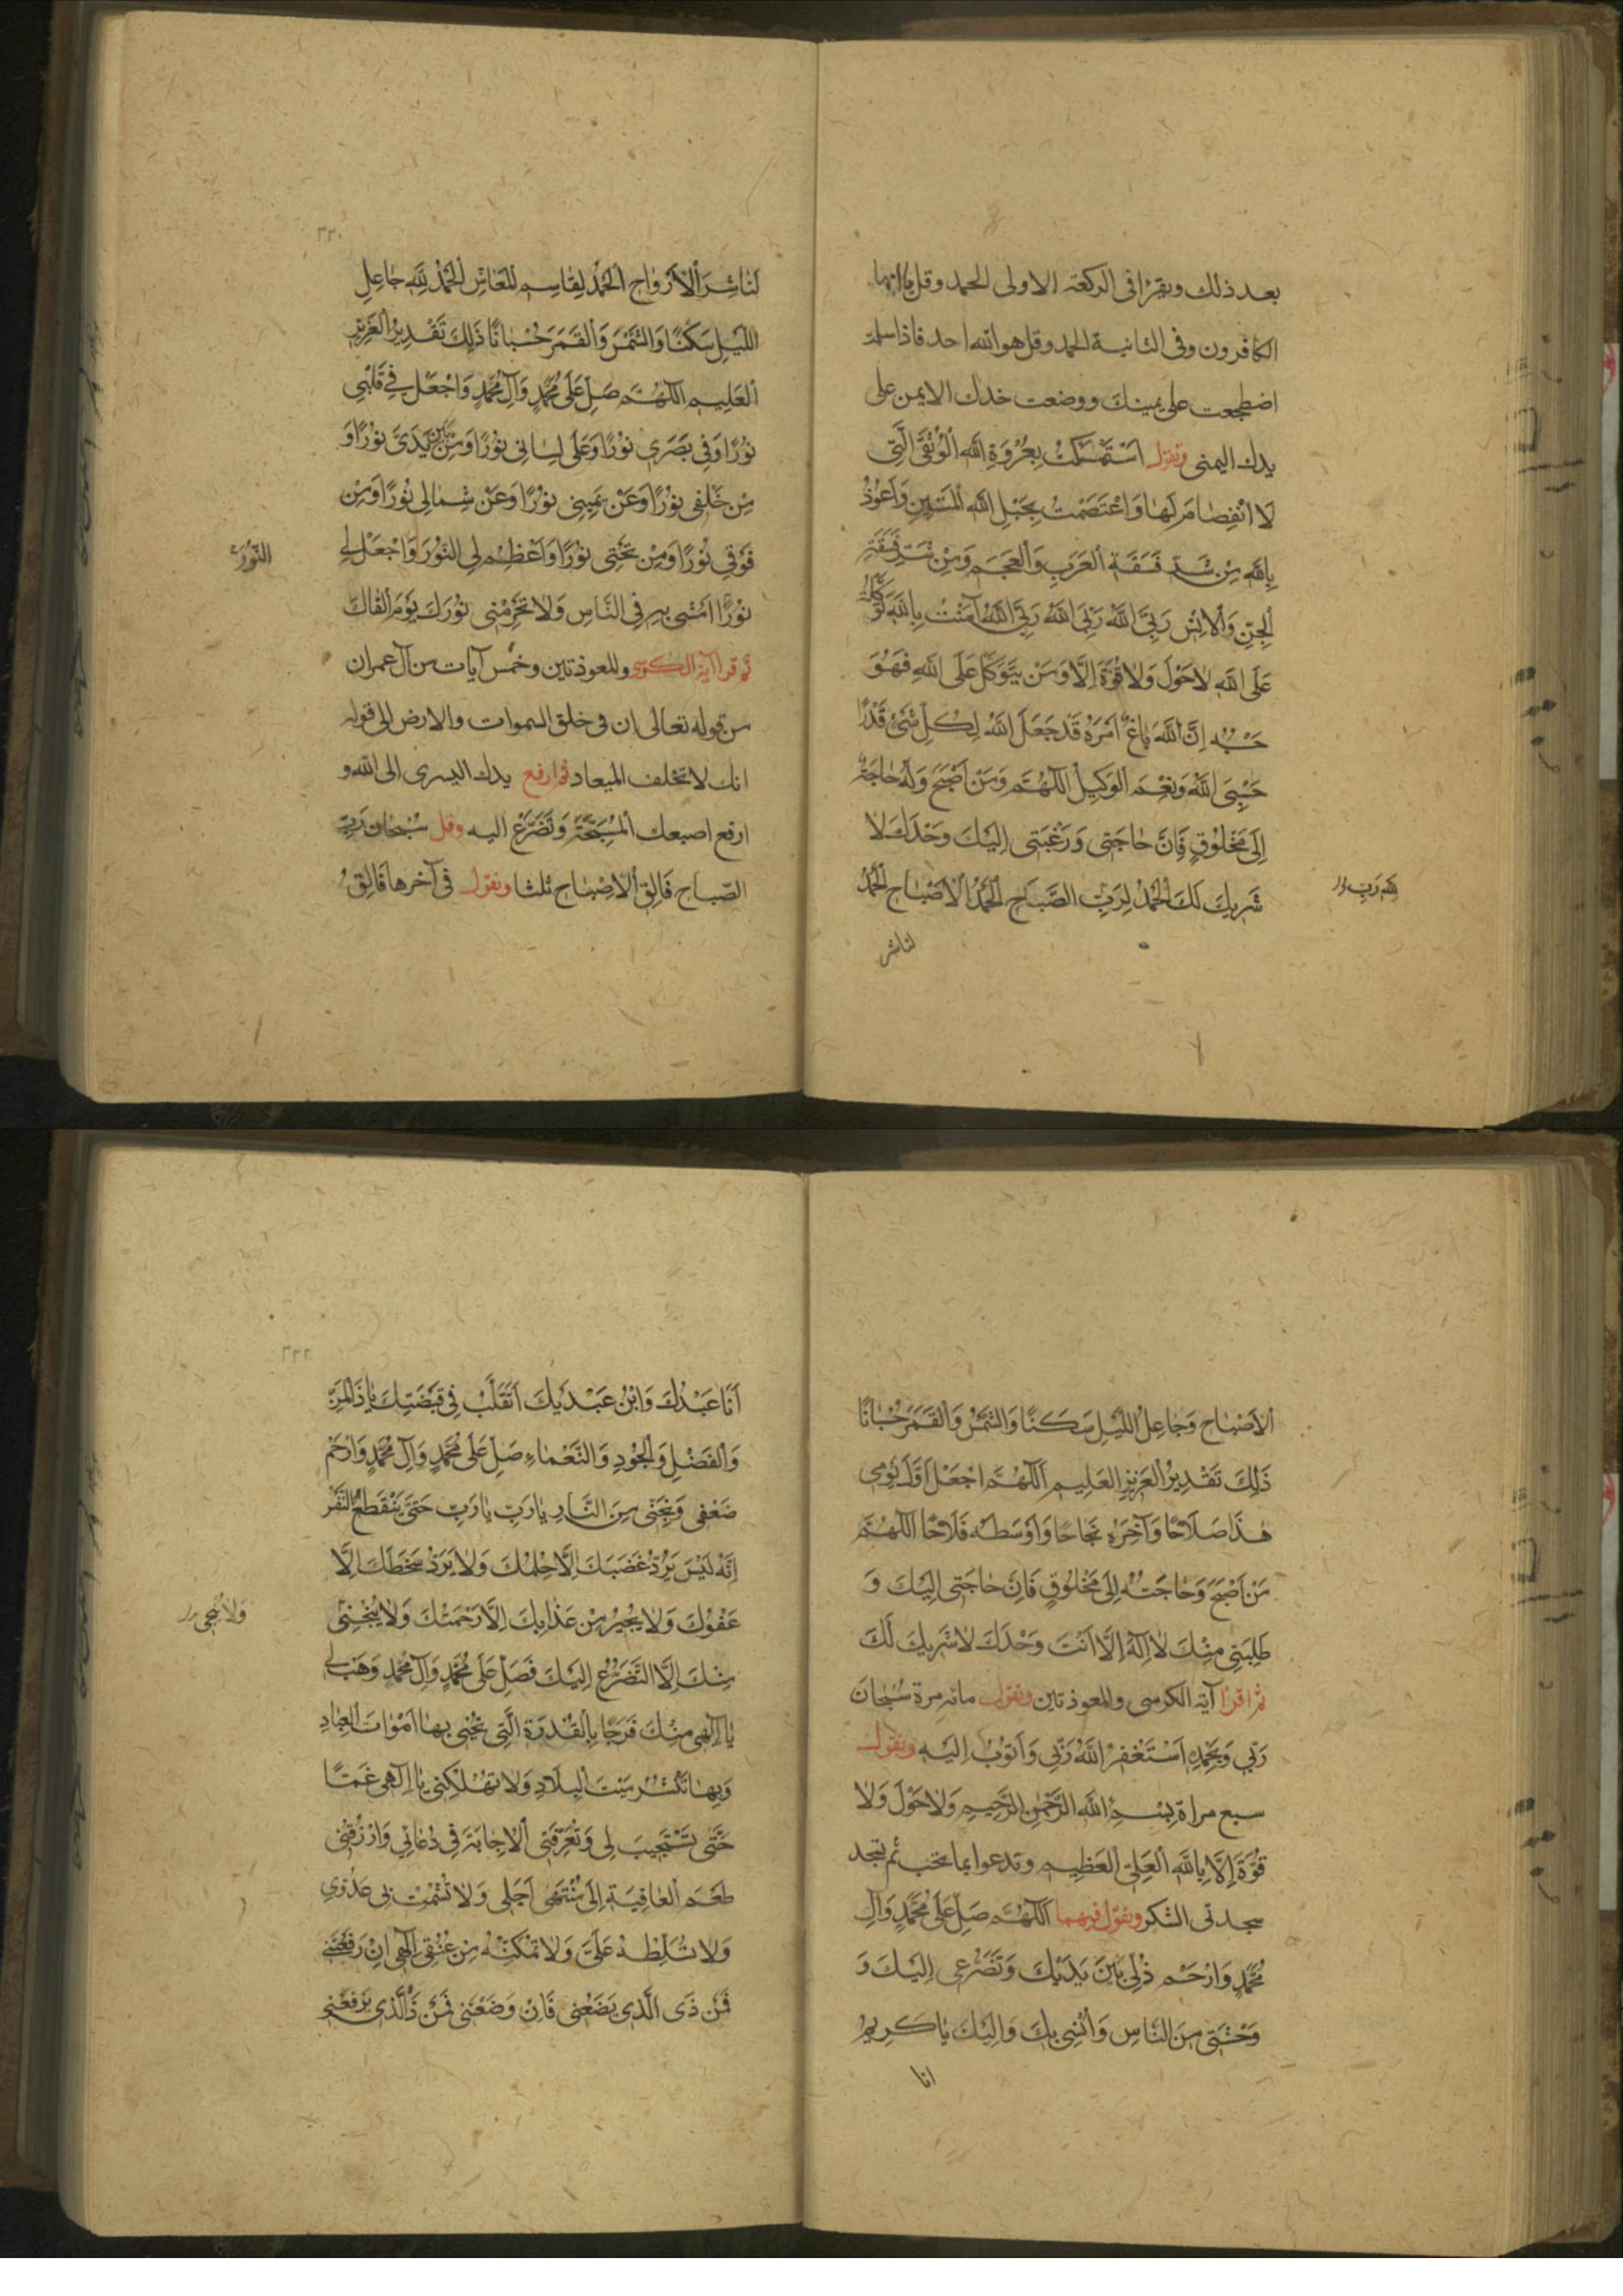 بعد ذلك ويقرء فى الركعة الاولى الحمد وقل يا ايها
الكافرون وفى الثانية الحمد وقل هو الله احد فاذا سلمت
اضطجعت على يمينك ووضعت خدك الايمن على
يدك اليمنى وتقول اَسْتَمْسَكْتُ بِعُرْوَةِ اللهِ الْوُثْقَى الَّتِى
لَا انْفِصامَ لَها وَاعْتَصَمْتُ بِحَبْلِ اللهِ الْمَتينِ وَاَعُوذُ
بِاللهِ مِنْ شَرِّ فَسَقَةِ الْعَرَبِ وَالْعَجَمِ وَمِنْ شَرِّ فَسَقَةِ
الْجِنِّ وَالْاِنْسِ رَبِّىَ اللهُ رَبِّىَ اللهُ رَبِّىَ اللهُ آمَنْتُ بِاللهِ تَوَكَّلْتُ
عَلَى اللهِ لا حَوْلَ وَلا قُوَّةَ اِلَّا وَمَنْ يَتَوَكَّلْ عَلَى اللهِ فَهُوَ
حَسْبُهُ اِنَّ اللهَ بالِغُ اَمْرِهِ قَدْ جَعَلَ اللهُ لِكُلِّ شَىْءٍ قَدْرًا
حَسْبِىَ اللهُ وَنِعْمَ الْوَكيلُ اَللّهُمَّ وَمَنْ اَصْبَحَ وَلَهُ حاجَةٌ
اِلى مَخْلُوقٍ فَاِنَّ حاجَتى وَرَغْبَتى اِلَيْكَ وَحْدَكَ لا
شَريكَ لَكَ الْحَمْدُ لِرَبِّ الصَّباحِ الْحَمْدُ الْاَصْباحِ الْحَمْدُ
لِلهِ رَبِّ
لناشر
٢٢٠
لِناشِرِ الْاَرْواحِ اَلْحَمْدُ لِقاسِمِ الْمَعاشِ اَلْحَمْدُ لِلهِ جاعِلِ
اللَّيْلِ سَكَنًا وَالشَّمْسَ وَالْقَمَرَ حُسْبانًا ذلِكَ تَقْديرُ الْعَزيزِ
الْعَليمِ اَللّهُمَّ صَلِّ عَلى مُحَمَّدٍ وَآلِ مُحَمَّدٍ وَاجْعَلْ فى قَلْبى
نُورًا وَفى بَصَرى نُورًا وَعَلى لِسانى نُورًا وَمِنْ بَيْنِ يَدَىَّ نُورًا وَ
مِنْ خَلْفى نُورًا وَعَنْ يَمينى نُورًا وَعَنْ شِمالى نُورًا وَمِنْ
فَوْقى نُورًا وَمِنْ تَحْتى نُورًا وَاَعْظِمْ لِى النُّورَ وَاجْعَلْ لى
النُّورَ
نُورًا اَمْشى بِهِ فِى النَّاسِ وَلا تَحْرِمْنى نُورَكَ يَوْمَ اَلْقاكَ
ثم قرا آية الكرسى والمعوذتين وخمس آيات من آل عمران
من قوله تعالى ان فى خلق السموات والارض الى قوله
انك لا تخلف الميعاد ثم ارفع يدك اليسرى الى الله و
ارفع اصبعك الْمُسَبِّحَةَ وَتَضَرَّعْ اليه وقل سُبْحانَ رَبِّ
الصَّباحِ فَالِقِ الْاِصْباحِ ثلثا وتقول فى آخرها فَالِقِ
اَلْاَصْباحِ وَجاعِلِ اللَّيْلِ سَكَنًا وَالشَّمْسَ وَالْقَمَرَ حُسْبانًا
ذلِكَ تَقْديرُ الْعَزيزِ الْعَليمِ اَللّهُمَّ اجْعَلْ اَوَّلَ يَوْمى
هذا صَلاحًا وَآخِرَهُ نَجاحًا وَاَوْسَطَهُ فَلاحًا اَللّهُمَّ
مَنْ اَصْبَحَ وَحاجَتُهُ اِلى مَخْلُوقٍ فَاِنَّ حاجَتى اِلَيْكَ وَ
طَلِبَتى مِنْكَ لا اِلهَ اِلَّا اَنْتَ وَحْدَكَ لا شَريكَ لَكَ
ثم اقرا آية الكرسى والمعوذتين وتقول مائة مرة سُبْحانَ
رَبّى وَبِحَمْدِهِ اَسْتَغْفِرُ اللهَ رَبّى وَاَتُوبُ اِلَيْهِ وتقول
سبع مراة بِسْمِ اللهِ الرَّحْمنِ الرَّحيمِ وَلا حَوْلَ وَلا
قُوَّةَ اِلَّا بِاللهِ الْعَلِىِّ الْعَظيمِ وتدعوا بما تحب ثم تسجد
سجدتى الشكر وتقول فيهما اَللّهُمَّ صَلِّ عَلى مُحَمَّدٍ وَآلِ
مُحَمَّدٍ وَارْحَمْ ذُلّى بَيْنَ يَدَيْكَ وَتَضَرُّعى اِلَيْكَ وَ
وَحْشَتى مِنَ النَّاسِ وَاُنْسى بِكَ وَاِلَيْكَ يا كَريمُ
انا
٢٢٢
اَنَا عَبْدُكَ وَابْنُ عَبْدَيْكَ اَتَقَلَّبُ فى قَبْضَتِكَ يا ذَا الْمَنِّ
وَالْفَضْلِ وَالْجُودِ وَالنَّعْماءِ صَلِّ عَلى مُحَمَّدٍ وَآلِ مُحَمَّدٍ وَارْحَمْ
ضَعْفى وَنَجِّنى مِنَ النَّارِ يا رَبِّ يا رَبِّ حَتّى يَنْقَطِعَ النَّفَسُ
اِنَّهُ لَيْسَ يَرُدُّ غَضَبَكَ اِلَّا حِلْمُكَ وَلا يَرُدُّ سَخَطَكَ اِلَّا
عَفْوُكَ وَلا يُجيرُ مِنْ عَذابِكَ اِلَّا رَحْمَتُكَ وَلا يُنْجينى
وَلا يُنْجى
مِنْكَ اِلَّا التَّضَرُّعُ اِلَيْكَ فَصَلِّ عَلى مُحَمَّدٍ وَآلِ مُحَمَّدٍ وَهَبْ لى
يا اِلهى مِنْكَ فَرَجًا بِالْقُدْرَةِ الَّتى تُحْيى بِها اَمْواتَ الْعِبادِ
وَبِها تَنْشُرُ مَيْتَ الْبِلادِ وَلا تُهْلِكْنى يا اِلهى غَمًّا
حَتّى تَسْتَجيبَ لى وَتُعَرِّفَنِى الْاِجابَةَ فى دُعائى وَارْزُقْنى
طَعْمَ الْعافِيَةِ اِلى مُنْتَهى اَجَلى وَلا تُشْمِتْ بى عَدُوّى
وَلا تُسَلِّطْهُ عَلَىَّ وَلا تُمَكِّنْهُ مِنْ عُنُقى اِلهى اِنْ رَفَعْتَنى
فَمَنْ ذَى الَّذى يَضَعُنى فَاِنْ وَضَعْتَنى فَمَنْ ذَا الَّذى يَرْفَعُنى